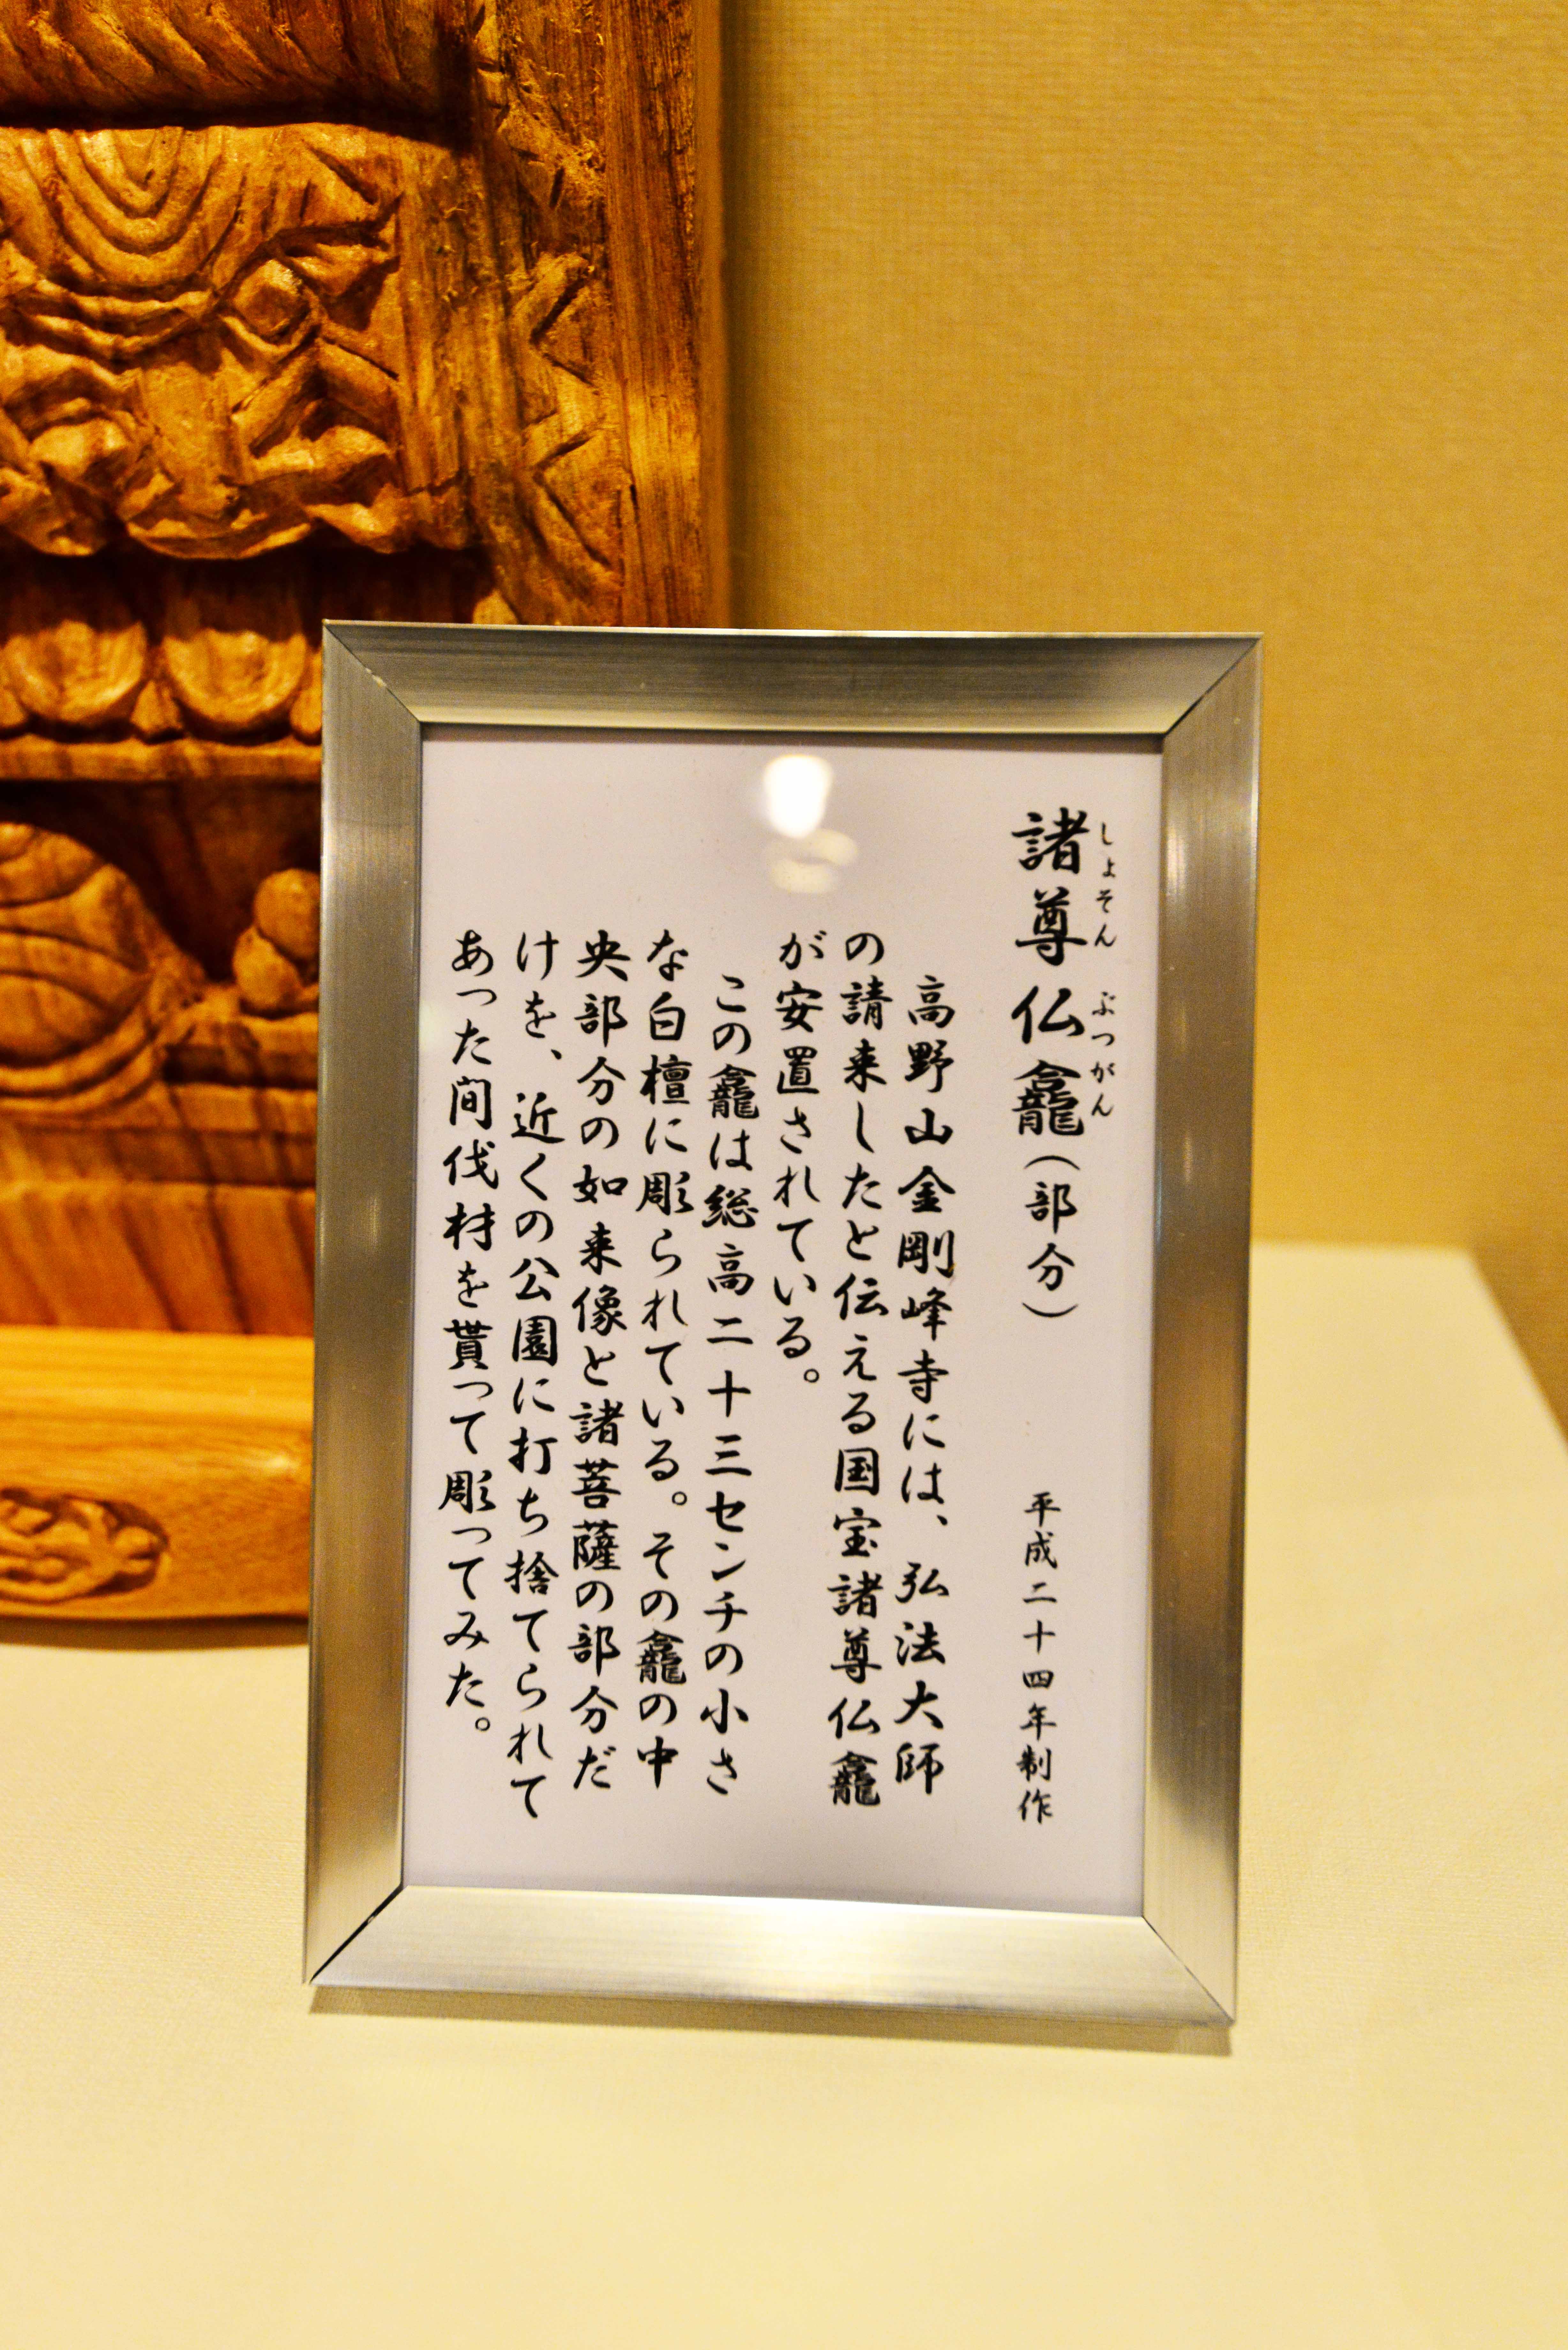 諸尊仏龕（部分）　平成二十四年制作
しょそん　ぶつがん
高野山金剛峰寺には、弘法大師
の請来したと伝える国宝諸尊仏龕
が安置されている。
この龕は総高二十三センチの小さ
な白檀に彫られている。その龕の中
央部分の如来像と諸菩薩の部分だ
けを、近くの公園に打ち捨てられて
あった間伐材を貰って彫ってみた。